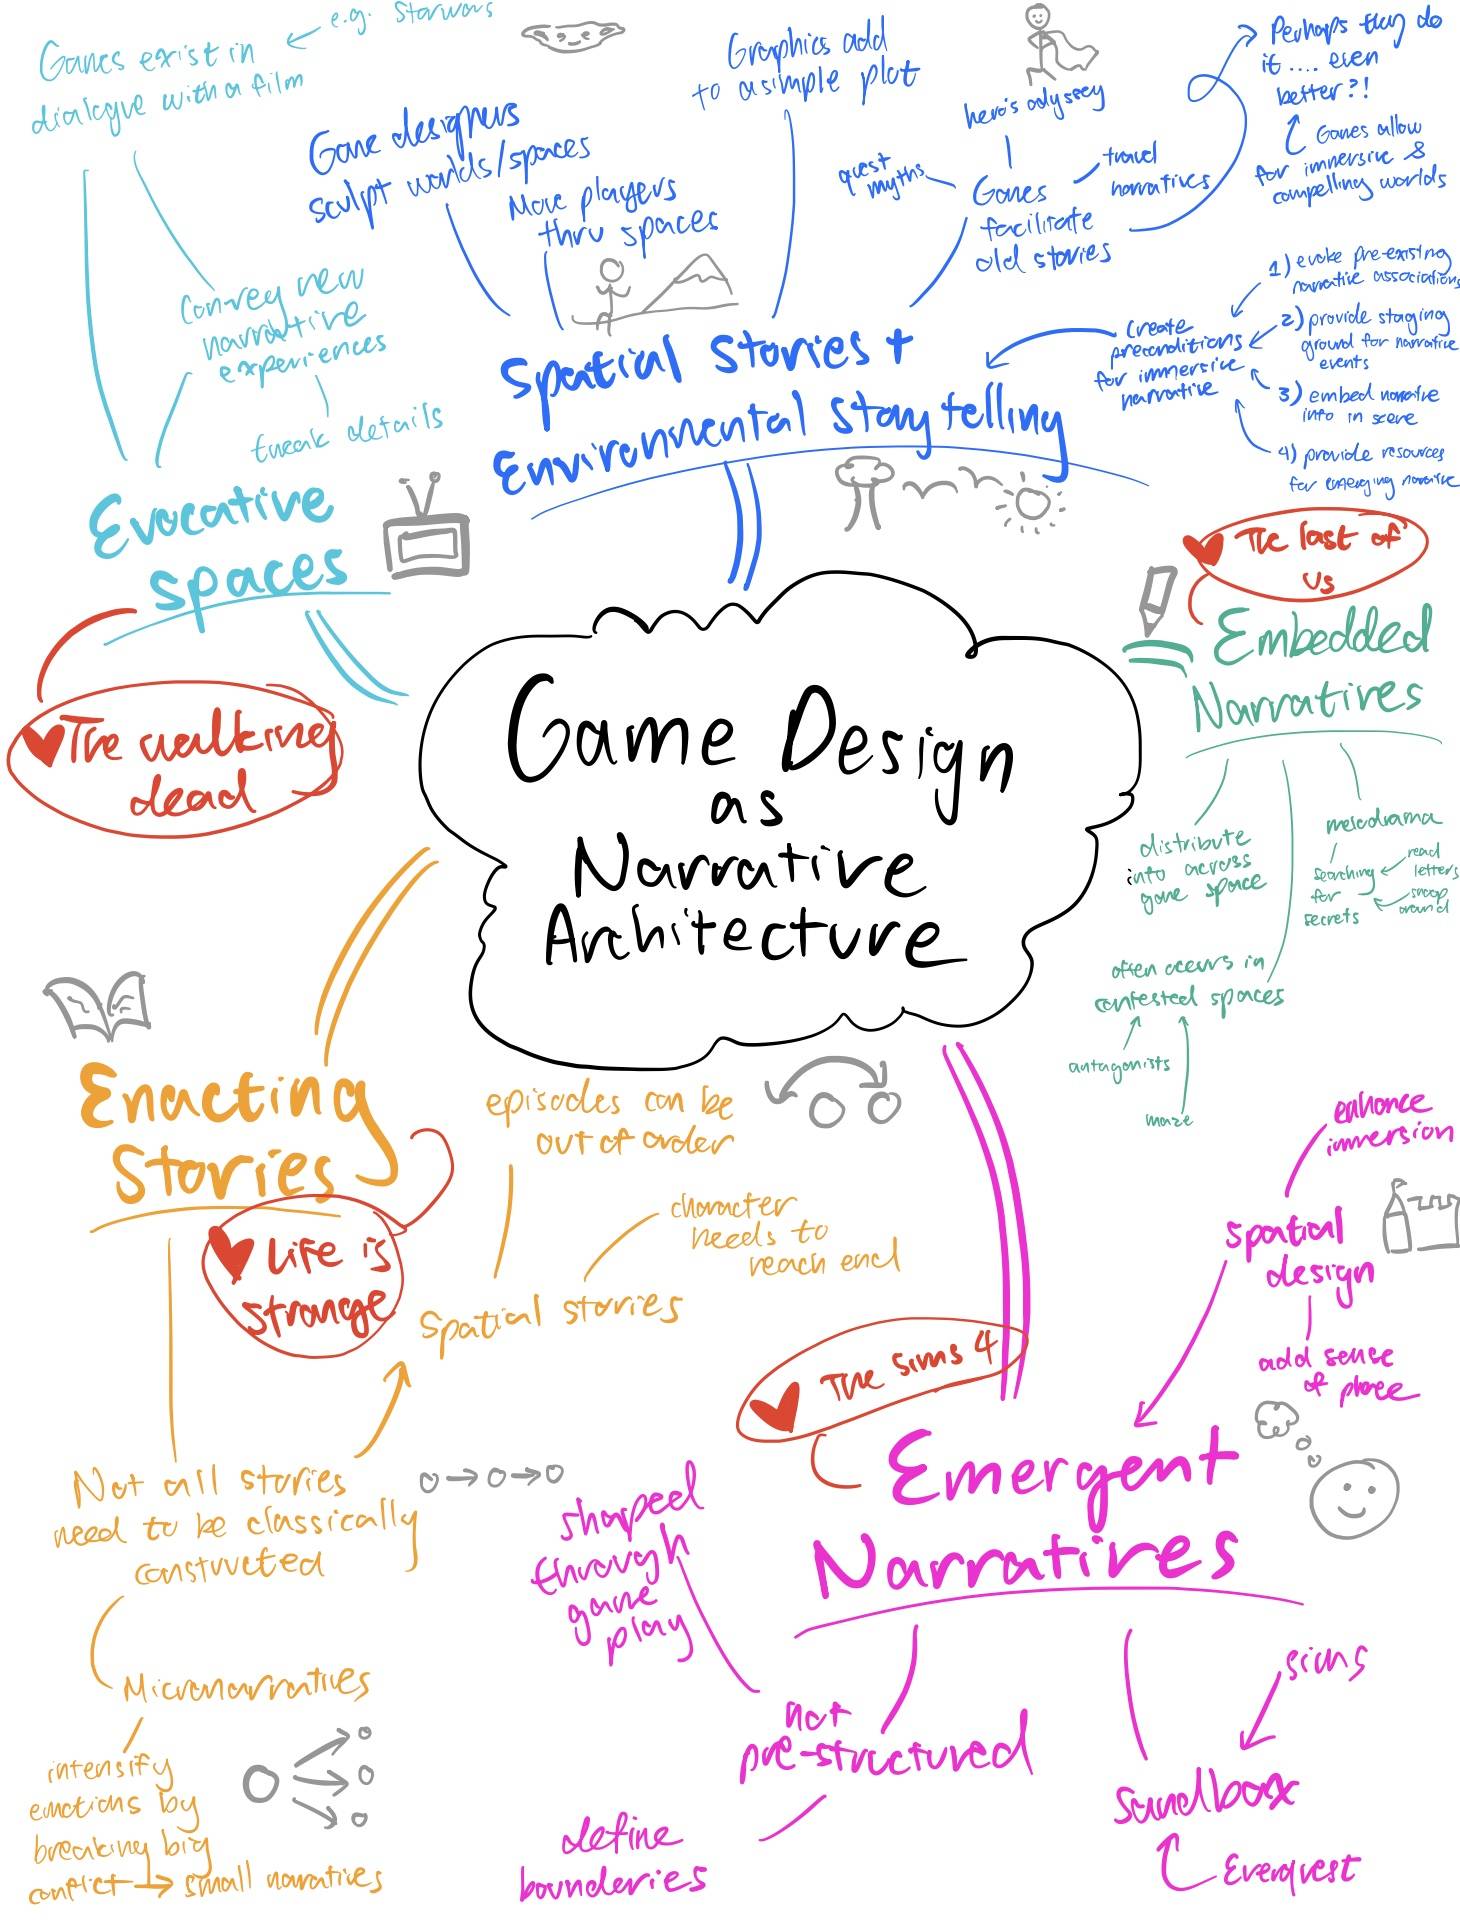 Games exist in
dialogue with a film
e.g. Starwars
Convey new
narrative
experiences
tweak details
Evocative
spaces
The walking
dead
Game designers
sculpt worlds/spaces
Move players
thru spaces
Graphics add
to a simple plot
hero's odyssey
quest
myths
travel
narratives
Games
facilitate
old stories
Perhaps they do
it .... even
better?!
Games allow
for immersive &
compelling worlds
Spatial Stories +
Environmental Storytelling
create
preconditions
for immersive
narrative
1) evoke pre-existing
narrative associations
2) provide staging
ground for narrative
events
3) embed narrative
info in scene
4) provide resources
for emerging narrative
The last of
us
Embedded
Narratives
distribute
info across
game space
melodrama
searching
for
secrets
read
letters
snoop
around
often occurs in
contested spaces
antagonists
maze
Game Design
as
Narrative
Architecture
Enacting
Stories
Life is
strange
episodes can be
out of order
character
needs to
reach end
Spatial stories
Not all stories
need to be classically
constructed
Micronarratives
intensify
emotions by
breaking big
conflict → small narratives
enhance
immersion
spatial
design
add sense
of place
The Sims 4
Emergent
Narratives
shaped
through
game
play
not
pre-structured
define
bounderies
sims
Sandbox
Everquest